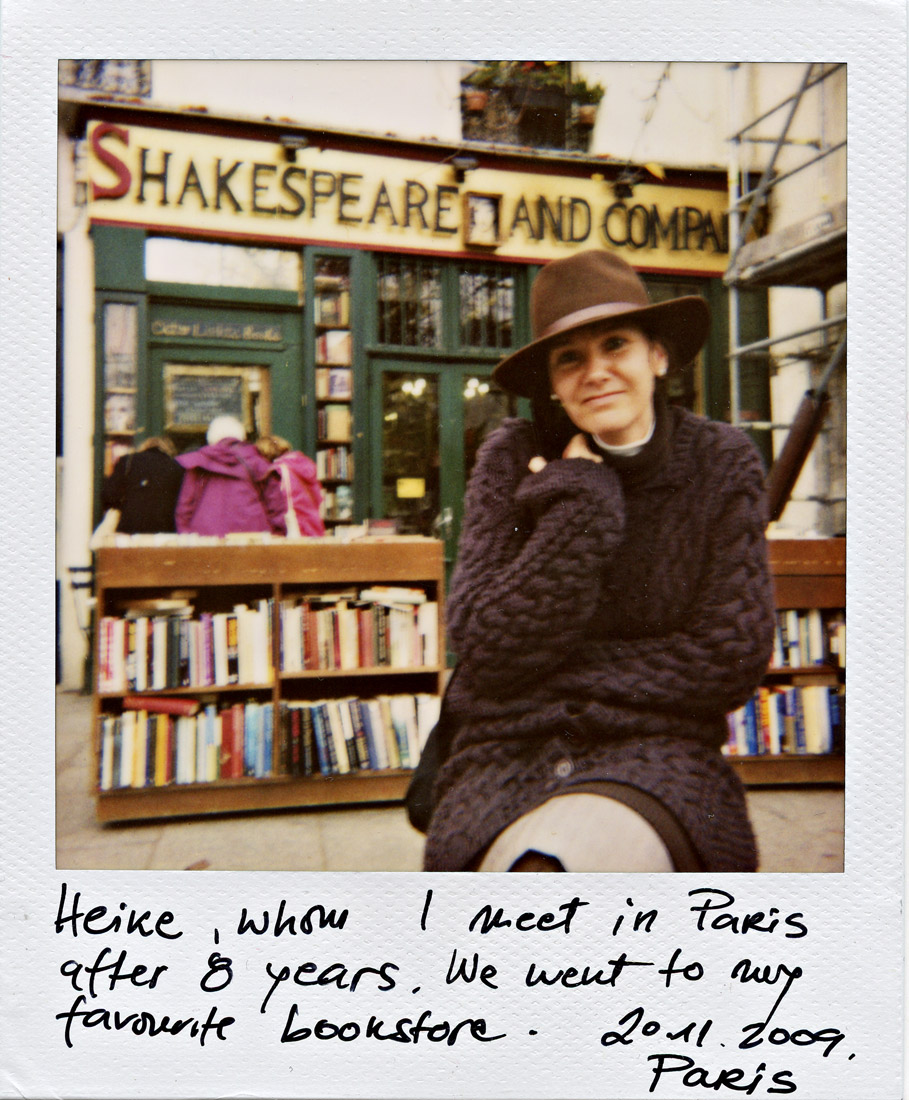 SHAKESPEARE AND COMPA
Heike, whom I meet in Paris
after 8 years. We went to my
favourite bookstore. 20.11.2009.
Paris